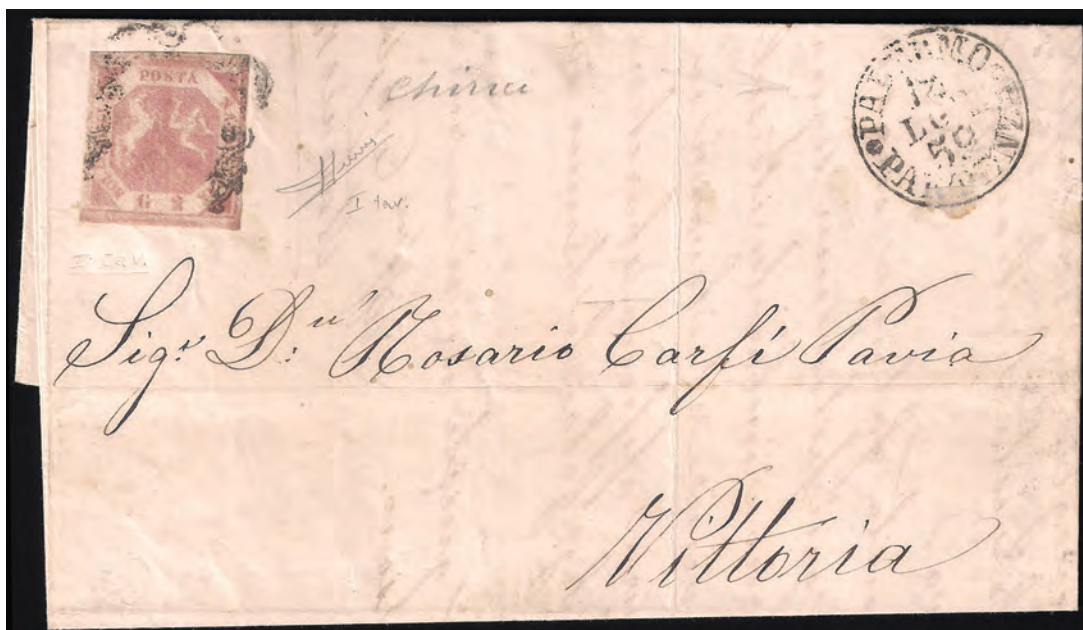 POSTA
G. 2
Chiavi
I tav.
I tav.
PALERMO
LUG
Sig.r D.n Rosario Carfí Pavia
Vittoria